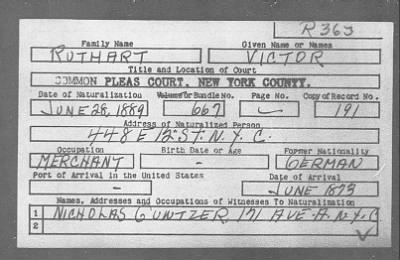 R363
Family Name Given Name or Names
RUTHART VICTOR
Title and Location of Court
COMMON PLEAS COURT, NEW YORK COUNTY.
Date of Naturalization Volume or Bundle No. Page No. Copy of Record No.
JUNE 28, 1889 667 - 191
Address of Naturalized Person
448 E 15" ST. N.Y.C.
Occupation Birth Date or Age Former Nationality
MERCHANT - GERMAN
Port of Arrival in the United States Date of Arrival
- JUNE 1873
Names, Addresses and Occupations of Witnesses To Naturalization
1 NICHOLAS GUNTZER 171 AVE. A. N.Y.C
2